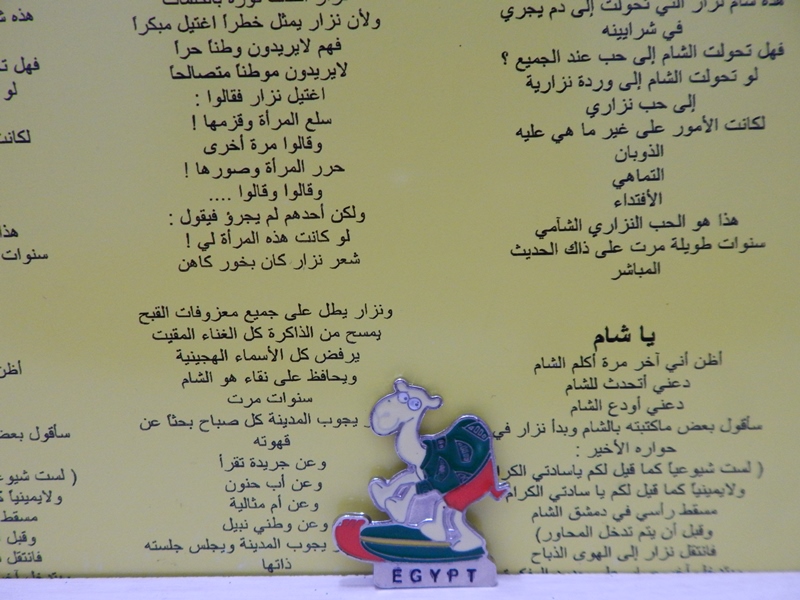 هذه شام نزار التي تحولت إلى دم يجري
في شرايينه
فهل تحولت الشام إلى حب عند الجميع ؟
لو تحولت الشام إلى وردة نزارية
إلى حب نزاري
لكانت الأمور على غير ما هي عليه
الذوبان
التماهي
الأفتداء
هذا هو الحب النزاري الشآمي
سنوات طويلة مرت على ذاك الحديث
المباشر
يا شام
أظن أني آخر مرة أكلم الشام
دعني أتحدث للشام
دعني أودع الشام
سأقول بعض ماكتبته بالشام وبدأ نزار في
حواره الأخير :
( لست شيوعياً كما قيل لكم ياسادتي الكرا
ولايمينياً كما قيل لكم يا سادتي الكرام
مسقط رأسي في دمشق الشام
وقبل أن يتم تدخل المحاور)
فانتقل نزار إلى الهوى الذباح
ولأن نزار يمثل خطراً اغتيل مبكراً
فهم لايريدون وطناً حراً
لايريدون موطناً متصالحاً
اغتيل نزار فقالوا :
سلع المرأة وقزمها !
وقالوا مرة أخرى
حرر المرأة وصورها !
وقالوا وقالوا ....
ولكن أحدهم لم يجرؤ فيقول :
لو كانت هذه المرأة لي !
شعر نزار كان بخور كاهن
ونزار يطل على جميع معزوفات القبح
يمسح من الذاكرة كل الغناء المقيت
يرفض كل الأسماء الهجينية
ويحافظ على نقاء هو الشام
سنوات مرت
يجوب المدينة كل صباح بحثاً عن
قهوته
وعن جريدة تقرأ
وعن أب حنون
وعن أم مثالية
وعن وطني نبيل
يجوب المدينة ويجلس جلسته
ذاتها
هذه ش
فهل ت
لو
لكانت
هذا
سنوات
أظن
سأقول بعض
( لست شيوع
ولايمينياً ك
مسقط
وقبل
فانتقل
EGYPT